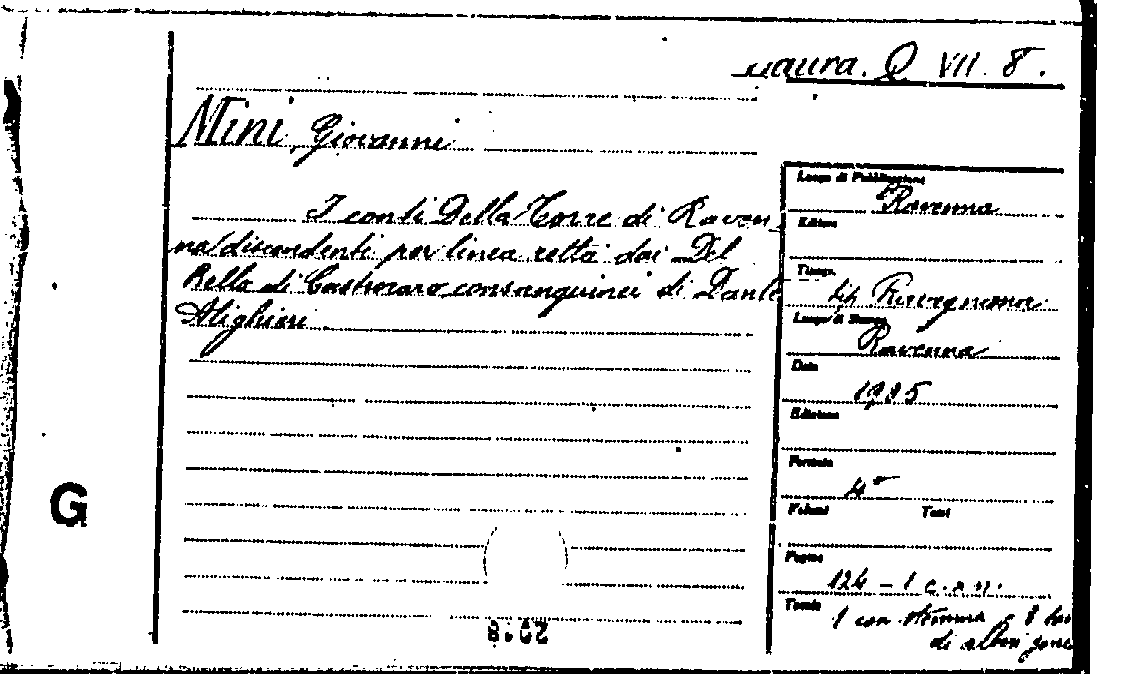 Laura. Q VII. 8.
Mini Giovanni
I conti Della Torre di Raven-
na discendenti per linea retta dai Del
Bello di Castrocaro consanguinei di Dante
Alighieri
Luogo di Pubblicazione
Ravenna
Editore
Tipogr.
tip Ravegnana
Luogo di Stampa
Ravenna
Data
1905
Edizione
Formato
4°
Volumi Tomi
Pagine
124 - 1 c. s. n.
Tavole
1 con stemma e 8
di alberi
G
20.8